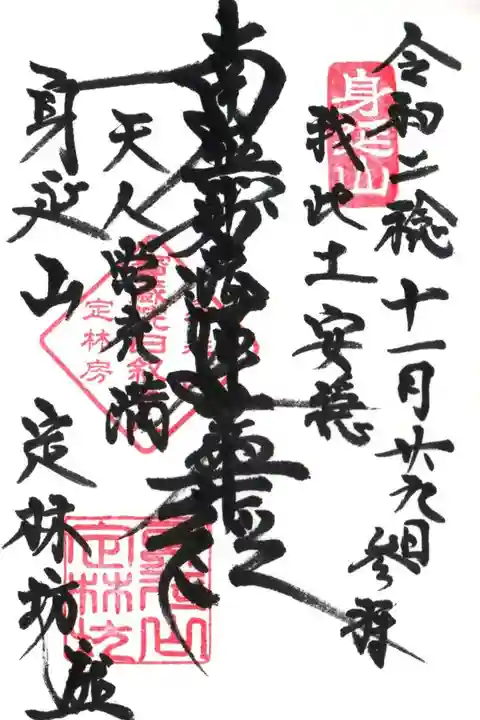 令和二稔十一月廿九日参拝
身延山
我此土安穏
南無妙法蓮華経
天人常充満
身延山 定林坊
定林房
身延山
定林坊